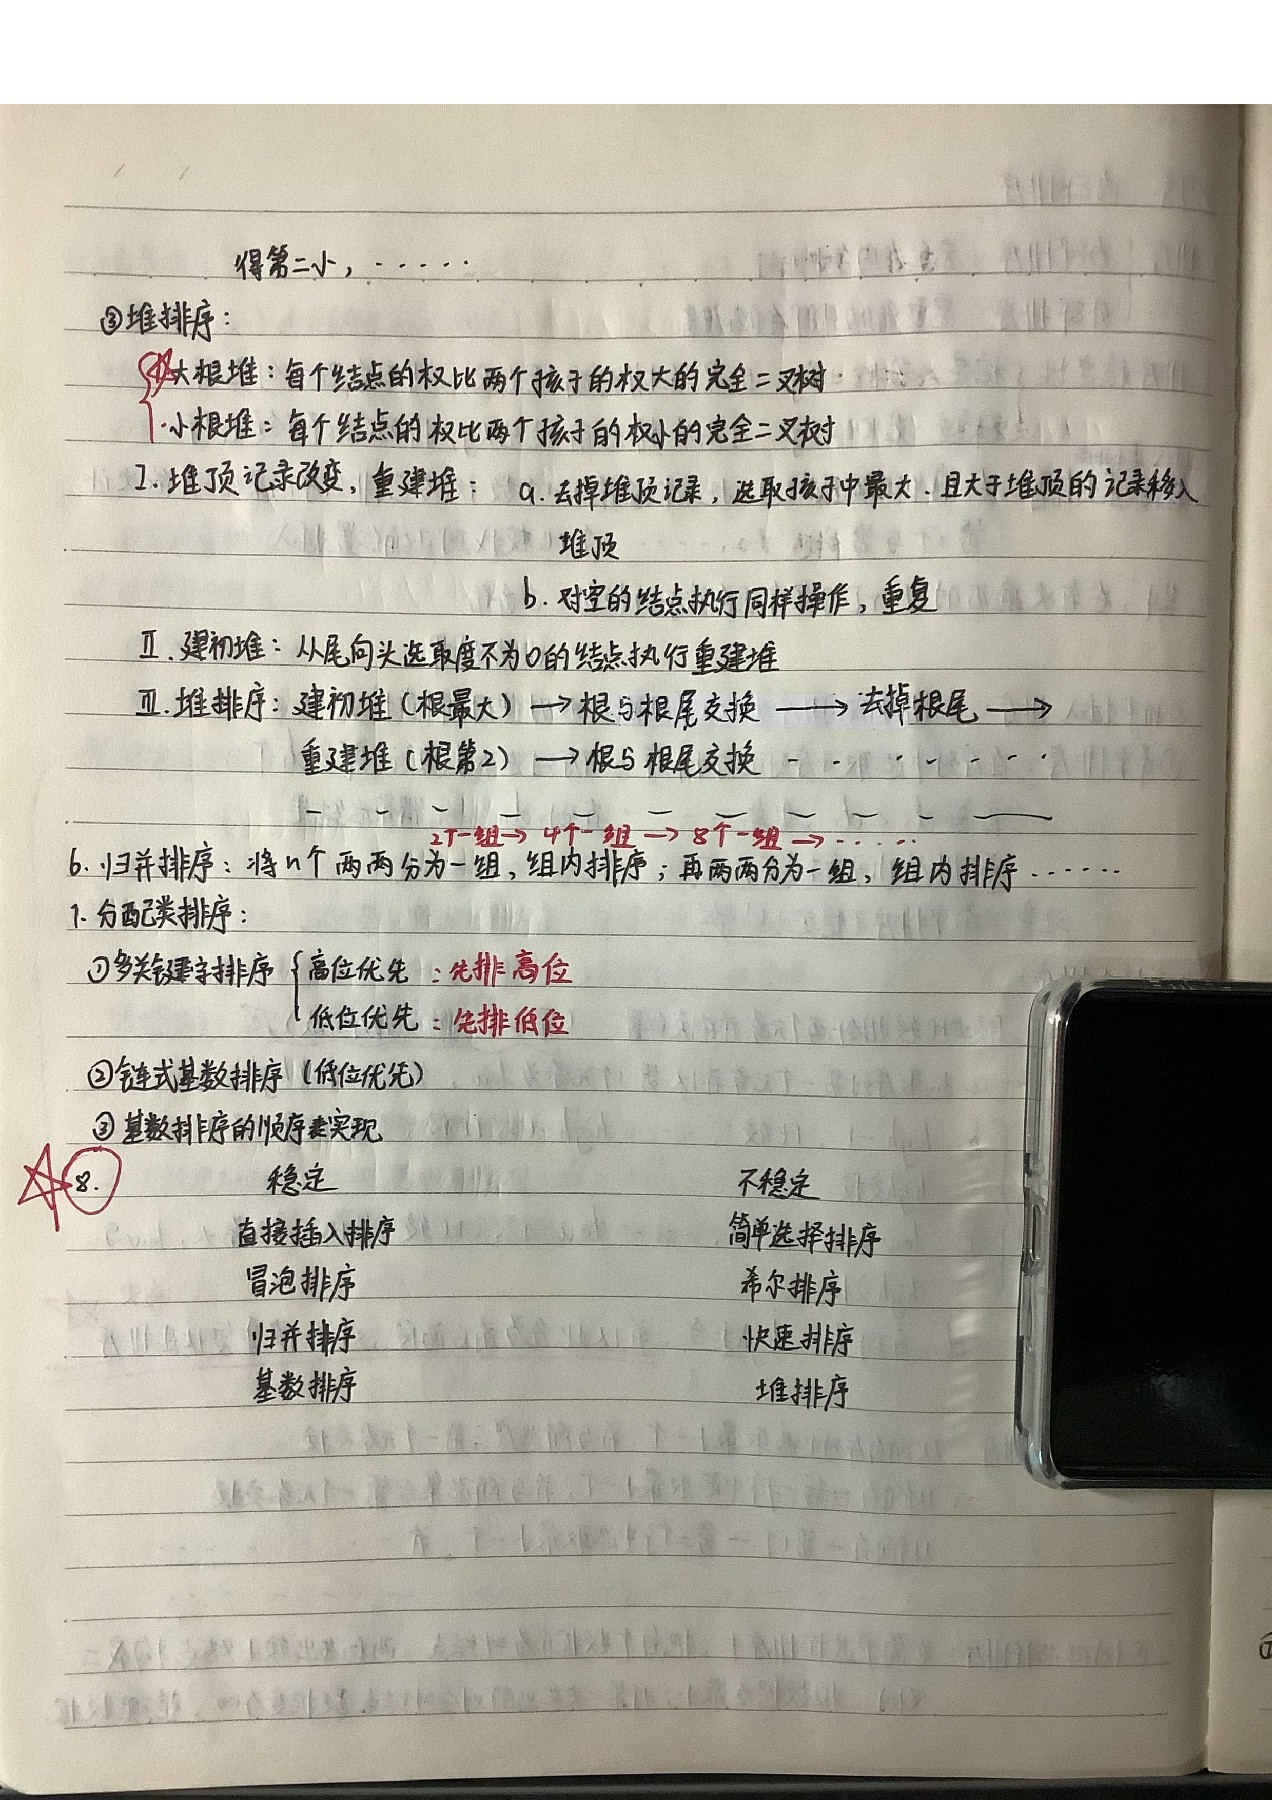 得第二小，·····
③堆排序：
大根堆：每个结点的权比两个孩子的权大的完全二叉树
小根堆：每个结点的权比两个孩子的权小的完全二叉树
I. 堆顶记录改变，重建堆： a. 去掉堆顶记录，选取孩子中最大.且大于堆顶的记录移入
堆顶
b. 对空的结点执行同样操作，重复
II. 建初堆：从尾向头选取度不为0的结点执行重建堆
III. 堆排序：建初堆（根最大）→根与根尾交换 → 去掉根尾 →
重建堆（根第2）→根与根尾交换 - - - - - - -
2个一组→ 4个一组 → 8个一组 → ·····
6. 归并排序：将n个两两分为一组，组内排序；再两两分为一组，组内排序······
7. 分配类排序：
①多关键字排序 { 高位优先：先排高位
低位优先：先排低位
②链式基数排序（低位优先）
③基数排序的顺序表实现
8. 稳定 不稳定
直接插入排序 简单选择排序
冒泡排序 希尔排序
归并排序 快速排序
基数排序 堆排序